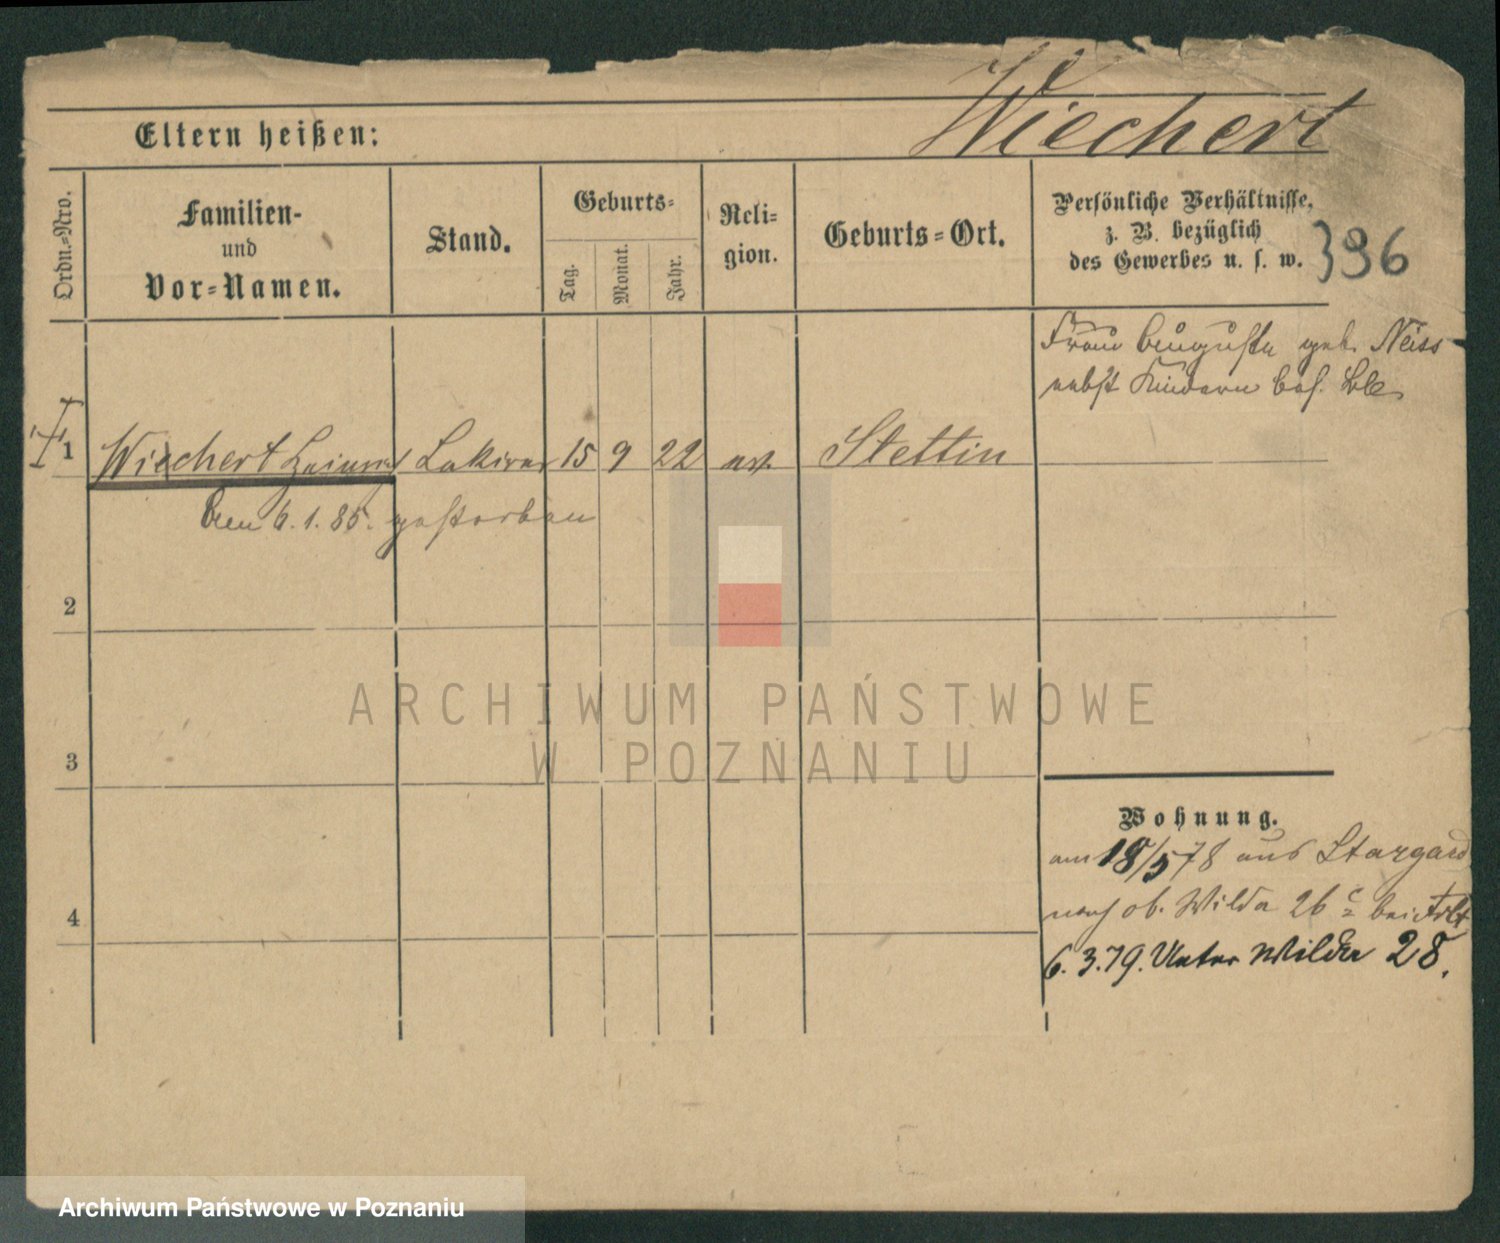 Wiechert
Eltern heißen:
Ordn.-Nro.
Familien-
und
Vor-Namen.
Stand.
Geburts-
Tag.
Monat.
Jahr.
Reli-
gion.
Geburts-Ort.
Persönliche Verhältnisse,
z. B. bezüglich
des Gewerbes u. s. w.
396
Frau Auguste geb. Neiss
nebst Kindern bes. Ble
1 Wiechert Heinrich Lakirer 15 9 22 ev. Stettin
Den 6.1.85. gestorben
2
3
4
Wohnung.
am 18/5 78 aus Stargard
nach ob. Wilda 26 c bei
6.3.79. Unter Wilda 28.
ARCHIWUM PAŃSTWOWE
W POZNANIU
Archiwum Państwowe w Poznaniu